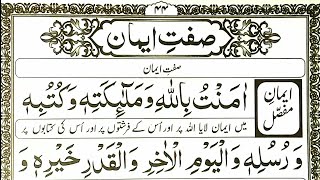 ۴۴
صفتِ ایمان
صفت ایمان
ایمانِ مفصّل
اٰمَنْتُ بِاللّٰهِ وَمَلٰٓئِكَتِهٖ وَكُتُبِهٖ
میں ایمان لایا اللہ پر اور اُس کے فرشتوں پر اور اُس کی کتابوں پر
وَ رُسُلِهٖ وَالْيَوْمِ الْاٰخِرِ وَالْقَدْرِ خَيْرِهٖ وَ